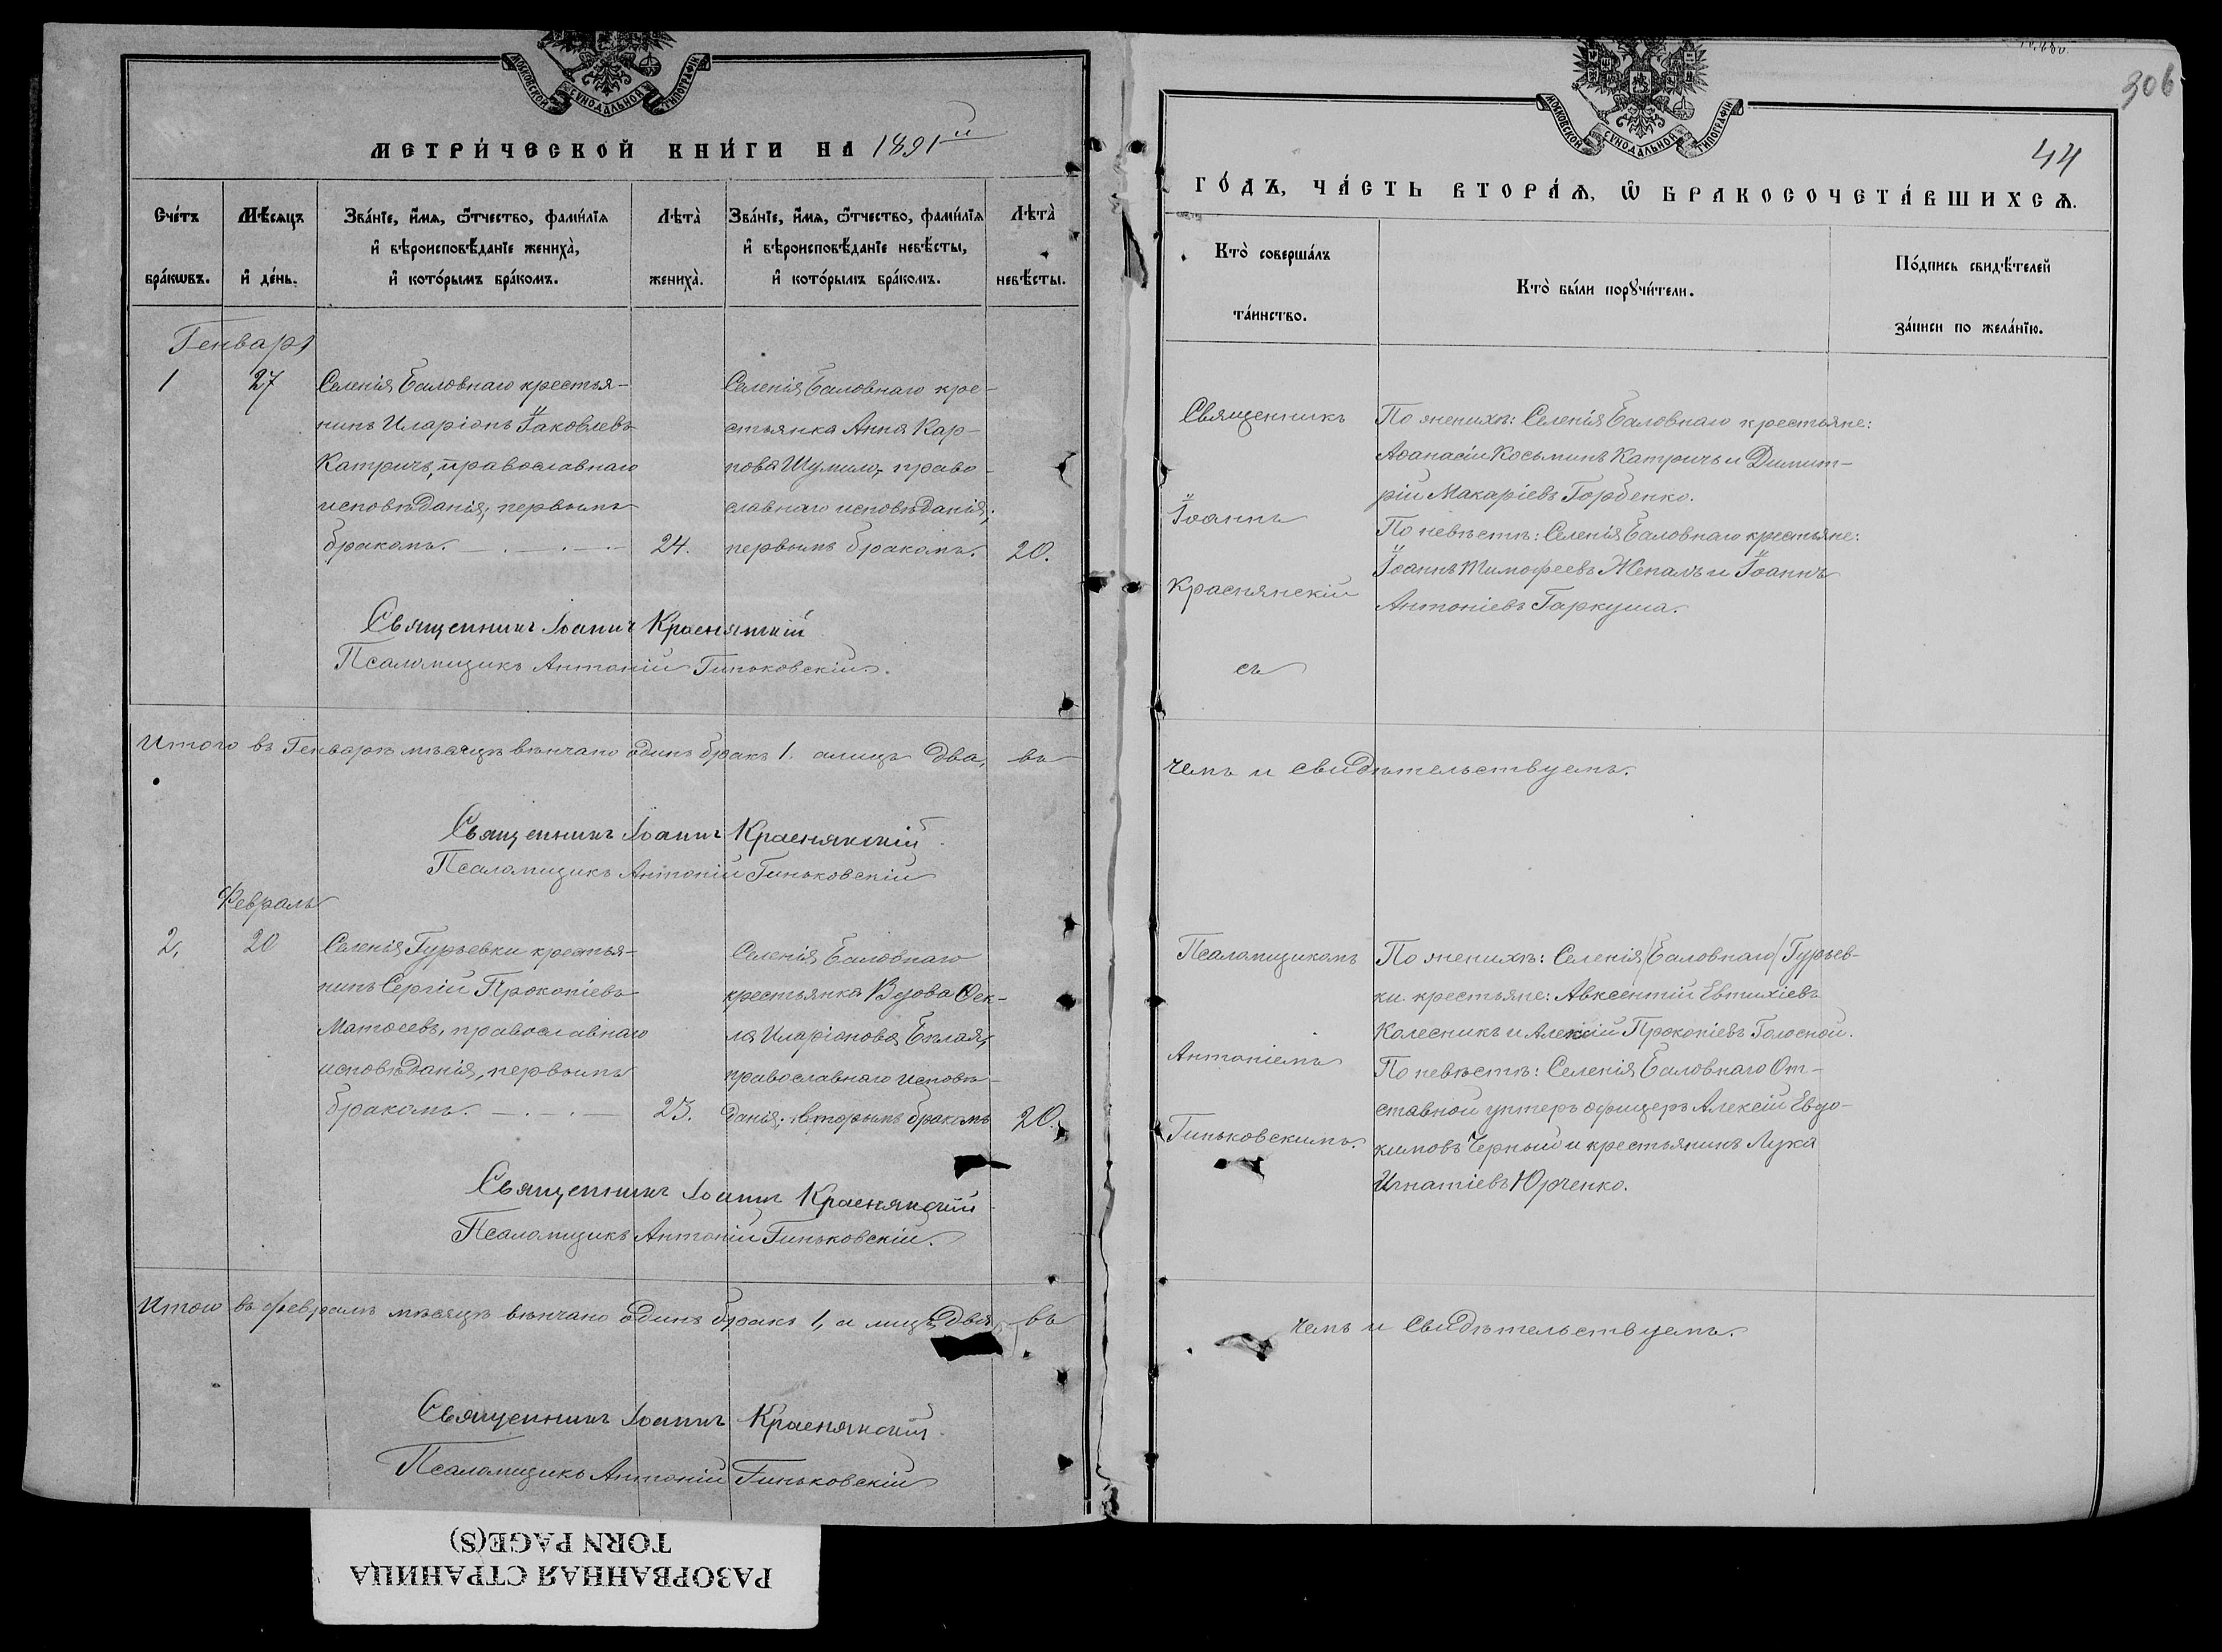 МОСКОВСКОЙ СѴНОДАЛЬНОЙ ТИПОГРАФІИ
МЕТРИ́ЧЕСКОЙ КНИ́ГИ НА 1891й
Сче́тъ бра́кѡвъ.
Мѣ́сяцъ и҆ де́нь.
Зва́нїе, и҆́мѧ, ѻ҆́тчество, фами́лїѧ
и҆ вѣроисповѣ́данїе жениха̀,
и҆ кото́рымъ бра́комъ.
Лѣта̀ жениха̀.
Зва́нїе, и҆́мѧ, ѻ҆́тчество, фами́лїѧ
и҆ вѣроисповѣ́данїе невѣ́сты,
и҆ кото́рымъ бра́комъ.
Лѣта̀ невѣ́сты.
Генварь
1
27
Селенія Баловнаго крестья-
нинъ Иларіонъ Іаковлевъ
Катричъ, православнаго
исповѣданія; первымъ
бракомъ.
24.
Селенія Баловнаго кре-
стьянка Анна Кар-
пова Шумило, право-
славнаго исповѣданія;
первымъ бракомъ.
20.
Священникъ Іоаннъ Краснянскій
Псаломщикъ Антоній Гиньковскій.
Итого въ Генварѣ мѣсяцѣ вѣнчано одинъ бракъ 1. а лицъ два, въ
Священникъ Іоаннъ Краснянскій.
Псаломщикъ Антоній Гиньковскій
Февраль
2,
20
Селенія Гурьевки крестья-
нинъ Сергій Прокопіевъ
Матѳеевъ, православнаго
исповѣданія, первымъ
бракомъ.
23.
Селенія Баловнаго
крестьянка Вдова Ѳек-
ла Иларіонова Бѣлая,
православнаго исповѣ-
данія; вторымъ бракомъ
20.
Священникъ Іоаннъ Краснянскій
Псаломщикъ Антоній Гиньковскій.
Итого въ Февралѣ мѣсяцѣ вѣнчано одинъ бракъ 1, а лицъ два, въ
Священникъ Іоаннъ Краснянскій.
Псаломщикъ Антоній Гиньковскій
РАЗОРВАННАЯ СТРАНИЦА
TORN PAGE(S)
306
МОСКОВСКОЙ СѴНОДАЛЬНОЙ ТИПОГРАФІИ
44
ГО́ДЪ, ЧА́СТЬ ВТОРА́Ѧ, Ѡ БРАКОСОЧЕТА́ВШИХСѦ.
Кто̀ соверша́лъ та́инство.
Кто̀ бы́ли порꙋчи́тели.
По́дпись свидѣ́телей
за́писи по жела́нїю.
Священникъ
Іоаннъ
Краснянскій
съ
По женихѣ: Селенія Баловнаго крестьяне:
Аѳанасій Косьминъ Катричъ и Димит-
рій Макаріевъ Горбенко.
По невѣстѣ: Селенія Баловнаго крестьяне:
Іоаннъ Тимофеевъ Жепалъ и Іоаннъ
Антоніевъ Гаркуша.
чемъ и свидѣтельствуемъ.
Псаломщикомъ
Антоніемъ
Гиньковскимъ.
По женихѣ: Селенія (Баловнаго) Гурьев-
ки крестьяне: Авксентій Евтихіевъ
Колесникъ и Алексій Прокопіевъ Голосной.
По невѣстѣ: Селенія Баловнаго От-
ставной унтеръ офицеръ Алексій Евдо-
кимовъ Черный и крестьянинъ Лука
Игнатіевъ Юрченко.
чемъ и свидѣтельствуемъ.